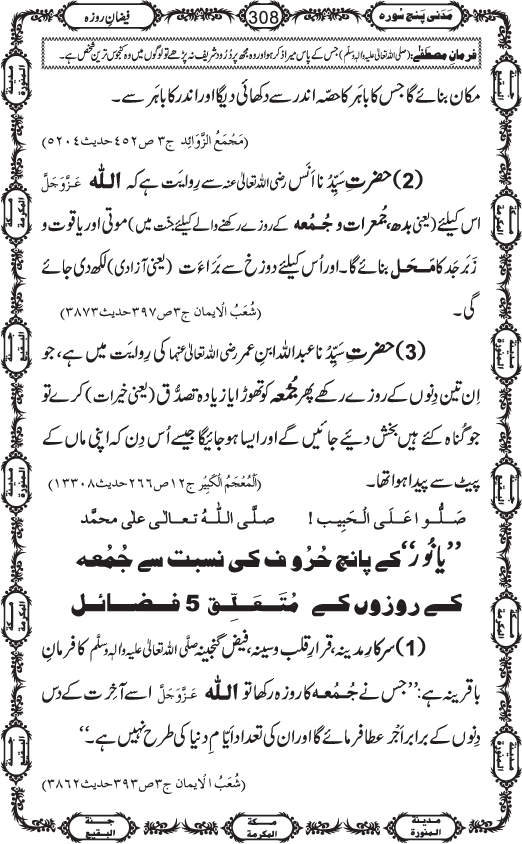 مَدَنی پنج سورہ 308 فیضانِ روزہ
فرمانِ مصطفےٰ: (صلی اللہ تعالیٰ علیہ واٰلہٖ وسلّم) جس کے پاس میرا ذکر ہوا اور وہ مجھ پر دُرُود شریف نہ پڑھے تو لوگوں میں وہ کنجوس ترین شخص ہے۔
مکان بنائے گا جس کا باہَر کا حصّہ اندر سے دکھائی دیگا اور اندر کا باہَر سے۔
(مَجْمَعُ الزَّوَائِد ج۳ ص۴۵۲ حدیث ۵۲۰۴)
(2) حضرتِ سیِّدُنا اَنَس رضی اللہ تعالیٰ عنہ سے رِوایَت ہے کہ اللہ عَزَّوَجَلَّ
اس کیلئے (یعنی بدھ، جُمعرات و جُمُعہ کے روزے رکھنے والے کیلئے جنّت میں) موتی اور یاقوت و
زَبَرجَد کا مَحَل بنائے گا۔ اور اُس کیلئے دوزخ سے بَرَاءَت (یعنی آزادی) لکھ دی جائے
گی۔ (شُعَبُ الْایمان ج۳ ص۳۹۷ حدیث ۳۸۷۳)
(3) حضرتِ سیِّدُنا عبداللہ ابنِ عمر رضی اللہ تعالیٰ عنہما کی رِوایَت میں ہے، جو
اِن تین دِنوں کے روزے رکھے پھر جُمُعہ کو تھوڑا یا زیادہ تصدُّق (یعنی خیرات) کرے تو
جو گناہ کئے ہیں بخش دیئے جائیں گے اور ایسا ہو جائیگا جیسے اُس دِن کہ اپنی ماں کے
پیٹ سے پیدا ہوا تھا۔ (اَلْمُعْجَمُ الْکَبِیْر ج۱۲ ص۲۶۶ حدیث ۱۳۳۰۸)
صَلُّوا عَلَی الْحَبِیب! صلَّی اللہُ تعالٰی علٰی محمَّد
”یا نُور“ کے پانچ حُرُوف کی نسبت سے جُمُعہ
کے روزوں کے مُتَعَلِّق 5 فضائل
(1) سرکارِ مدینہ، قرارِ قلب و سینہ، فیض گنجینہ صلَّی اللہ تعالیٰ علیہ واٰلہٖ وسلَّم کا فرمانِ
باقرینہ ہے: ”جس نے جُمُعہ کا روزہ رکھا تو اللہ عَزَّوَجَلَّ اسے آخِرت کے دس
دِنوں کے برابر اَجْر عطا فرمائے گا اور ان کی تعداد ایّامِ دنیا کی طرح نہیں ہے۔“
(شُعَبُ الْایمان ج۳ ص۳۹۳ حدیث ۳۸۶۲)
مدینۃ المنورۃ
مکۃ المکرمۃ
جنۃ البقیع
مدینۃ المنورۃ
مکۃ المکرمۃ
جنۃ البقیع
جنۃ البقیع
مکۃ المکرمۃ
مدینۃ المنورۃ
جنۃ البقیع
مکۃ المکرمۃ
مدینۃ المنورۃ
جنۃ البقیع
مکۃ المکرمۃ
مدینۃ المنورۃ